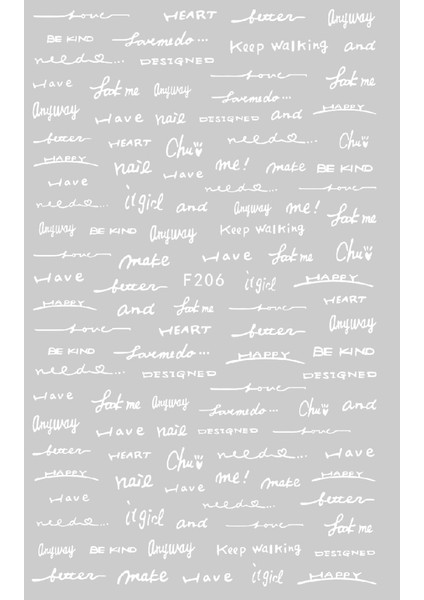 love HEART better Anyway
BE KIND Love me do... Keep Walking and
need... DESIGNED
love
Have Look me Anyway Look me
Love me do...
Anyway Have nail DESIGNED and HAPPY
better HEART Chu need... Chu
HAPPY nail Have me! make BE KIND
Have need... love
need... it girl and Anyway me! Look me
Anyway BE KIND Anyway Keep Walking
love make Have Look me Chu
Have better F206 it girl HAPPY
HAPPY and Look me love HEART
love HEART better Anyway
BE KIND Love me do... HAPPY BE KIND
need... DESIGNED DESIGNED
love
Have Look me Anyway Love me do... Chu and
Anyway Have nail DESIGNED love
better HEART Chu need... Have
HAPPY nail Have me! make HAPPY
Have need... better
need... it girl and love Look me
Anyway BE KIND Anyway Keep Walking DESIGNED
better make Have it girl HAPPY